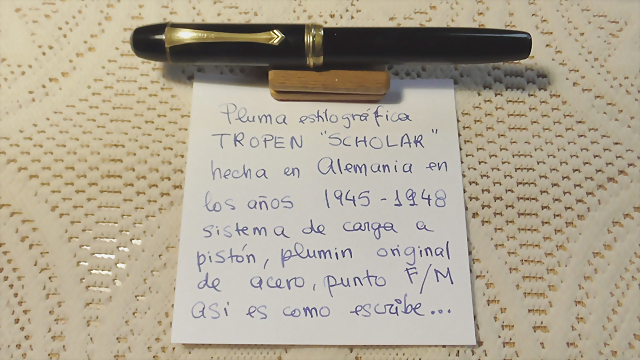 Pluma estilográfica
TROPEN "SCHOLAR"
hecha en Alemania en
los años 1945-1948
sistema de carga a
pistón, plumin original
de acero, punto F/M
asi es como escribe...